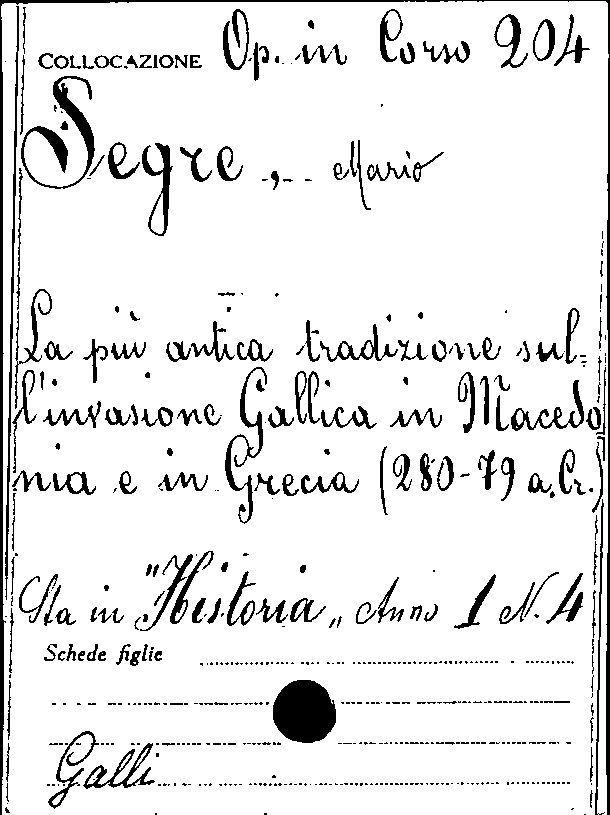 COLLOCAZIONE Op. in Corso 204
Segre, Mario
La più antica tradizione sul=
l'invasione Gallica in Macedo
nia e in Grecia (280-79 a.Cr.)
Sta in "Historia" Anno 1 N. 4
Schede figlie
Galli